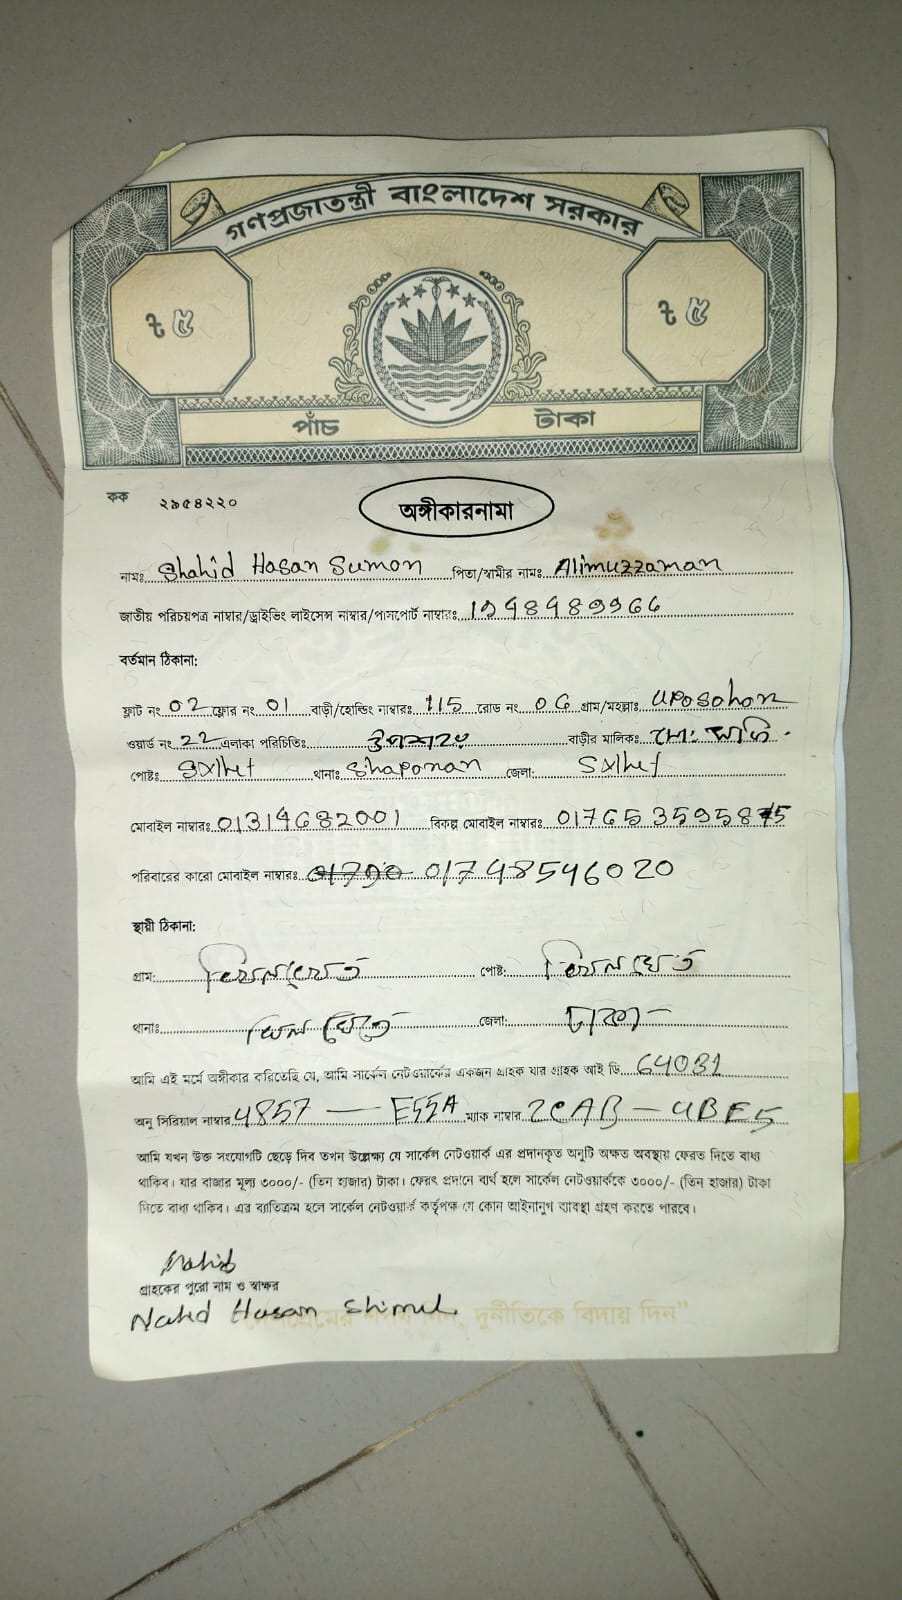 গণপ্রজাতন্ত্রী বাংলাদেশ সরকার
৳ ৫ ৳ ৫
পাঁচ টাকা
কক ২৯৫৪২২০
অঙ্গীকারনামা
নামঃ Shahid Hasan Sumon পিতা/স্বামীর নামঃ Alimuzzaman
জাতীয় পরিচয়পত্র নাম্বার/ড্রাইভিং লাইসেন্স নাম্বার/পাসপোর্ট নাম্বারঃ
বর্তমান ঠিকানা:
ফ্লাট নং 02 ফ্লোর নং 01 বাড়ী/হোল্ডিং নাম্বারঃ 115 রোড নং 06 গ্রাম/মহল্লাঃ Uposohon
ওয়ার্ড নং 22 এলাকা পরিচিতিঃ উপশহর বাড়ীর মালিকঃ মোঃ
পোষ্টঃ Sylhet থানাঃ Shaponan জেলা: Sylhet
মোবাইল নাম্বারঃ 01314682001 বিকল্প মোবাইল নাম্বারঃ
পরিবারের কারো মোবাইল নাম্বারঃ 01748546020
স্থায়ী ঠিকানা:
গ্রাম: খিলখেত পোষ্ট: খিলখেত
থানাঃ খিলখেত জেলা: ঢাকা
আমি এই মর্মে অঙ্গীকার করিতেছি যে, আমি সার্কেল নেটওয়ার্কের একজন গ্রাহক যার গ্রাহক আই ডি 64031
অনু সিরিয়াল নাম্বার 4857 — E55A ম্যাক নাম্বার 2CAB — 4BE5
আমি যখন উক্ত সংযোগটি ছেড়ে দিব তখন উল্লেক্ষ্য যে সার্কেল নেটওয়ার্ক এর প্রদানকৃত অনুটি অক্ষত অবস্থায় ফেরত দিতে বাধ্য
থাকিব। যার বাজার মূল্য ৩০০০/- (তিন হাজার) টাকা। ফেরৎ প্রদানে ব্যর্থ হলে সার্কেল নেটওয়ার্ককে ৩০০০/- (তিন হাজার) টাকা
দিতে বাধ্য থাকিব। এর ব্যতিক্রম হলে সার্কেল নেটওয়ার্ক কর্তৃপক্ষ যে কোন আইনানুগ ব্যবস্থা গ্রহণ করতে পারবে।
Nahid
গ্রাহকের পুরো নাম ও স্বাক্ষর
Nahid Hasan Shimul
দুর্নীতিকে বিদায় দিন"